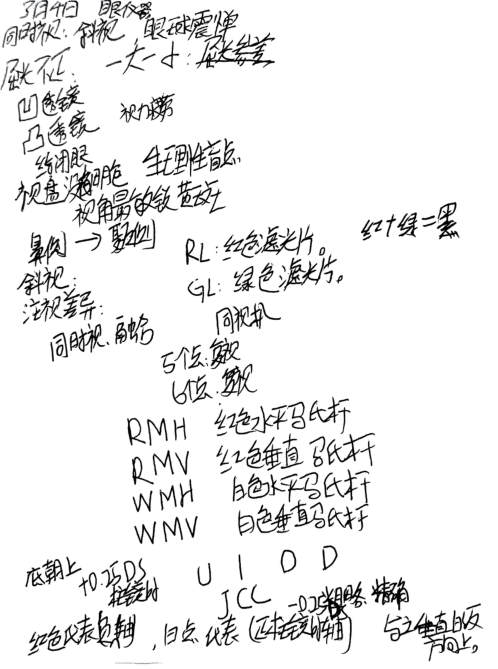 3月4日 眼仪器
同时视: 斜视 眼球震惮
屈光不正: 一大一小: 屈光参差
凹透镜
凸透镜 视力表
给闭眼
视盘没细胞 生理性盲点
视角最敏锐 黄斑
鼻侧 → 颞侧 RL: 红色滤光片。 红+绿=黑
斜视: GL: 绿色滤光片。
注视差异:
同时视、融合 同视机
5个点:复视
6个点:复视
RMH 红色水平马氏杆
RMV 红色垂直马氏杆
WMH 白色水平马氏杆
WMV 白色垂直马氏杆
底朝上 +0.25DS U I O D
JCC -0.25 精确
红色代表负轴, 白点代表(正柱镜的轴) 与之垂直的反方向上。